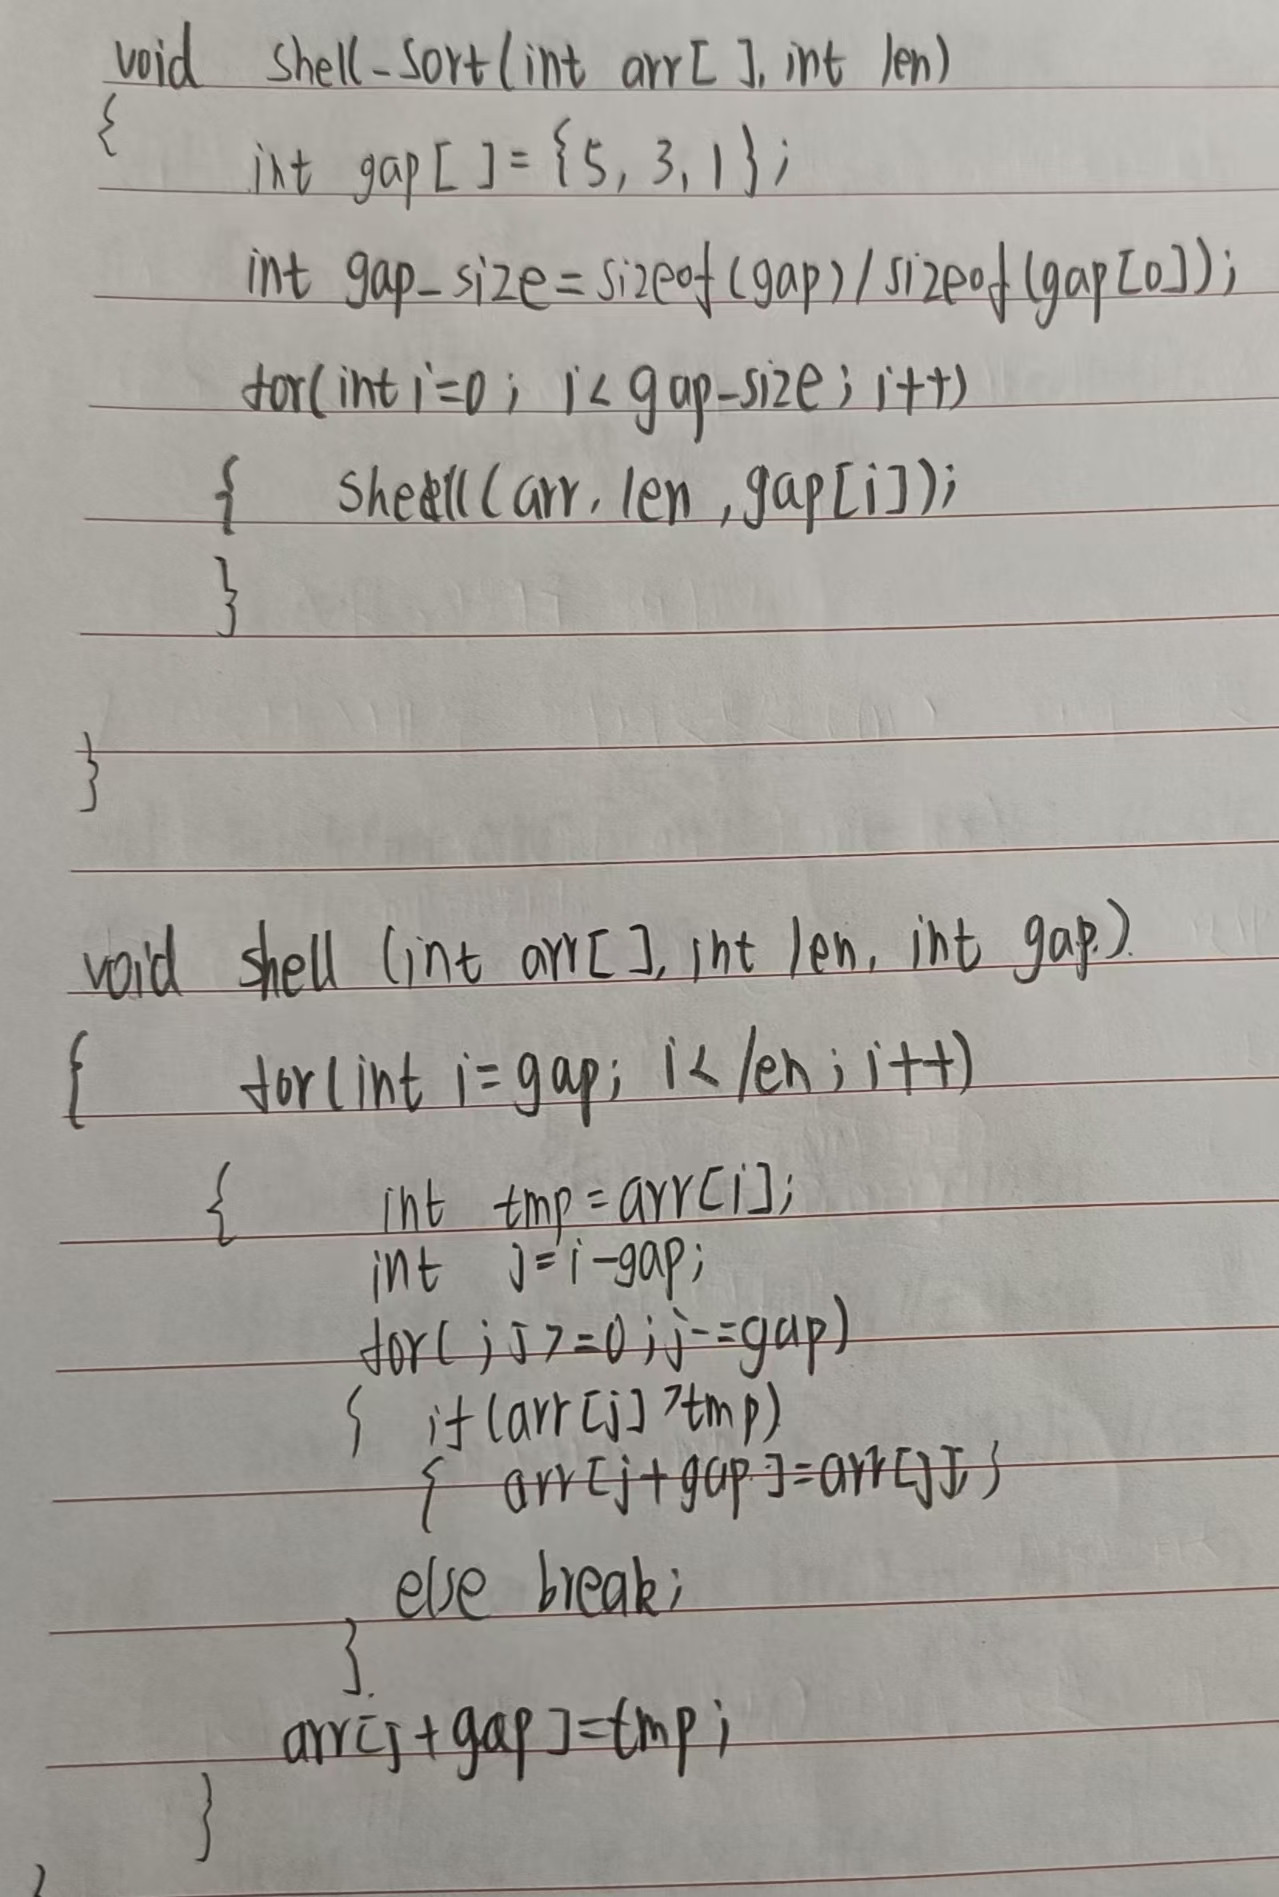 void shell_sort(int arr[], int len)
{
int gap[]={5,3,1};
int gap_size=sizeof(gap)/sizeof(gap[0]);
for(int i=0; i<gap_size; i++)
{ shell(arr, len, gap[i]);
}
}
void shell (int arr[], int len, int gap)
{ for(int i=gap; i<len; i++)
{ int tmp=arr[i];
int j=i-gap;
for(;j>=0;j-=gap)
{ if(arr[j]>tmp)
{ arr[j+gap]=arr[j];}
else break;
}
arr[j+gap]=tmp;
}
}